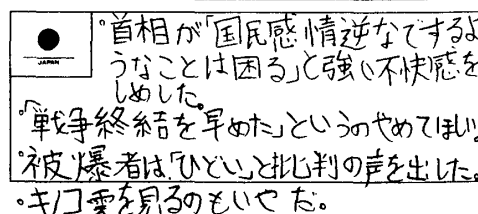 JAPAN
・首相が「国民感情逆なでするよ
うなことは困る」と強い不快感を
しめした。
・「戦争終結を早めた」というのやめてほしい。
・被爆者は、「ひどい」と批判の声を出した。
・キノコ雲を見るのもいやだ。